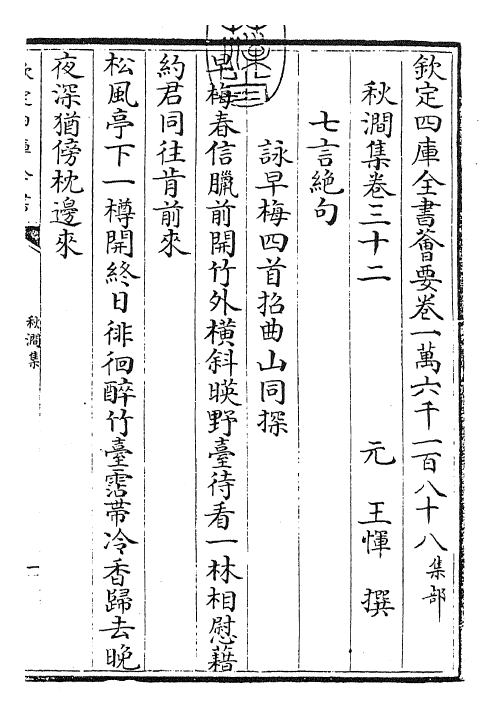 欽定四庫全書薈要卷一萬六千一百八十八集部
秋澗集卷三十二　元　王惲　撰
七言絶句
詠早梅四首招曲山同探
早梅春信臘前開竹外橫斜暎野臺待看一林相慰藉
約君同往肯前來
松風亭下一樽開終日徘徊醉竹臺霑帶冷香歸去晚
夜深猶傍枕邊來
欽定四庫全書
秋澗集
一